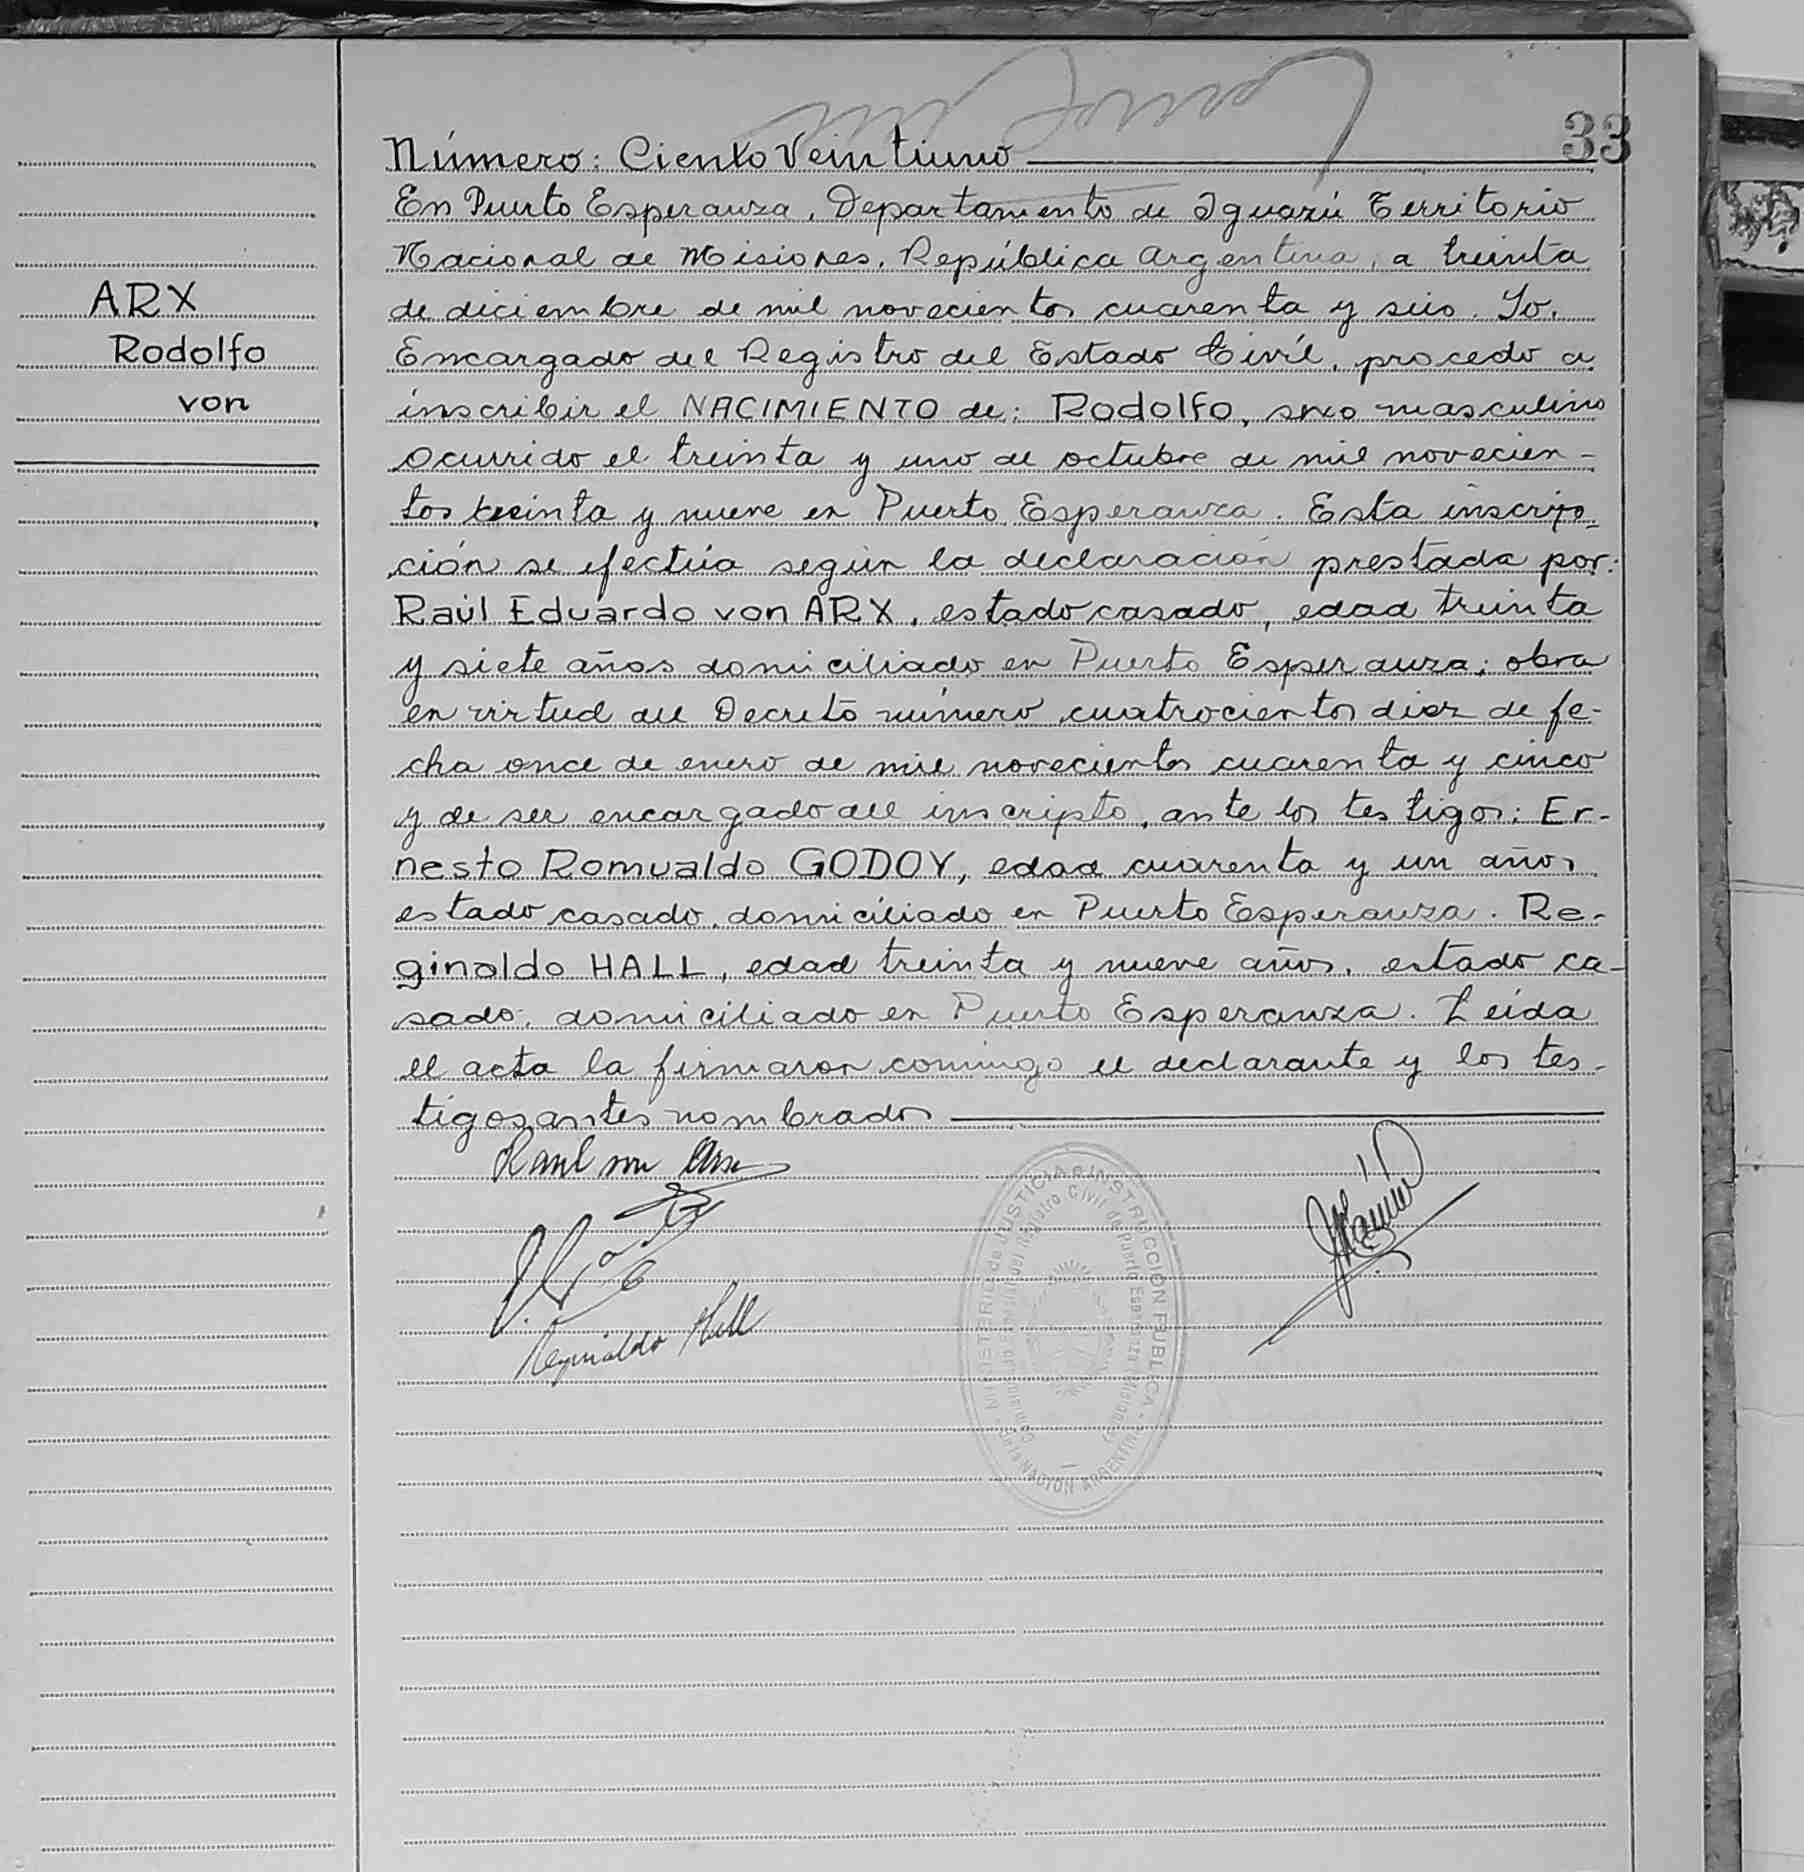 33
Número: Ciento Veintiuno
En Puerto Esperanza, Departamento de Iguazú Territorio
Nacional de Misiones, República Argentina, a treinta
de diciembre de mil novecientos cuarenta y seis. Yo,
Encargado del Registro del Estado Civil, procedo a
inscribir el NACIMIENTO de: Rodolfo, sexo masculino
ocurrido el treinta y uno de octubre de mil novecien-
tos treinta y nueve en Puerto Esperanza. Esta inscrip-
ción se efectúa según la declaración prestada por:
Raúl Eduardo von ARX, estado casado, edad treinta
y siete años domiciliado en Puerto Esperanza; obra
en virtud del Decreto número cuatrocientos diez de fe-
cha once de enero de mil novecientos cuarenta y cinco
y de ser encargado del inscripto, ante los testigos: Er-
nesto Romualdo GODOY, edad cuarenta y un años,
estado casado, domiciliado en Puerto Esperanza. Re-
ginaldo HALL, edad treinta y nueve años, estado ca-
sado, domiciliado en Puerto Esperanza. Leída
el acta la firmaron conmigo el declarante y los tes-
tigos antes nombrados
ARX
Rodolfo
von
Raul von Arx
Reginaldo Hall
MINISTERIO de JUSTICIA e INSTRUCCION PUBLICA
de la NACION ARGENTINA
Registro Civil de Puerto Esperanza Misiones